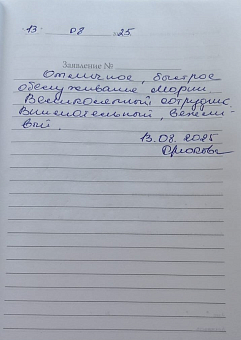 13. 08 2025
Заявление №
Отличное, быстрое
обслуживание Марии.
Великолепный сотрудник.
Внимательный, вежли
вый.
13.08.2025